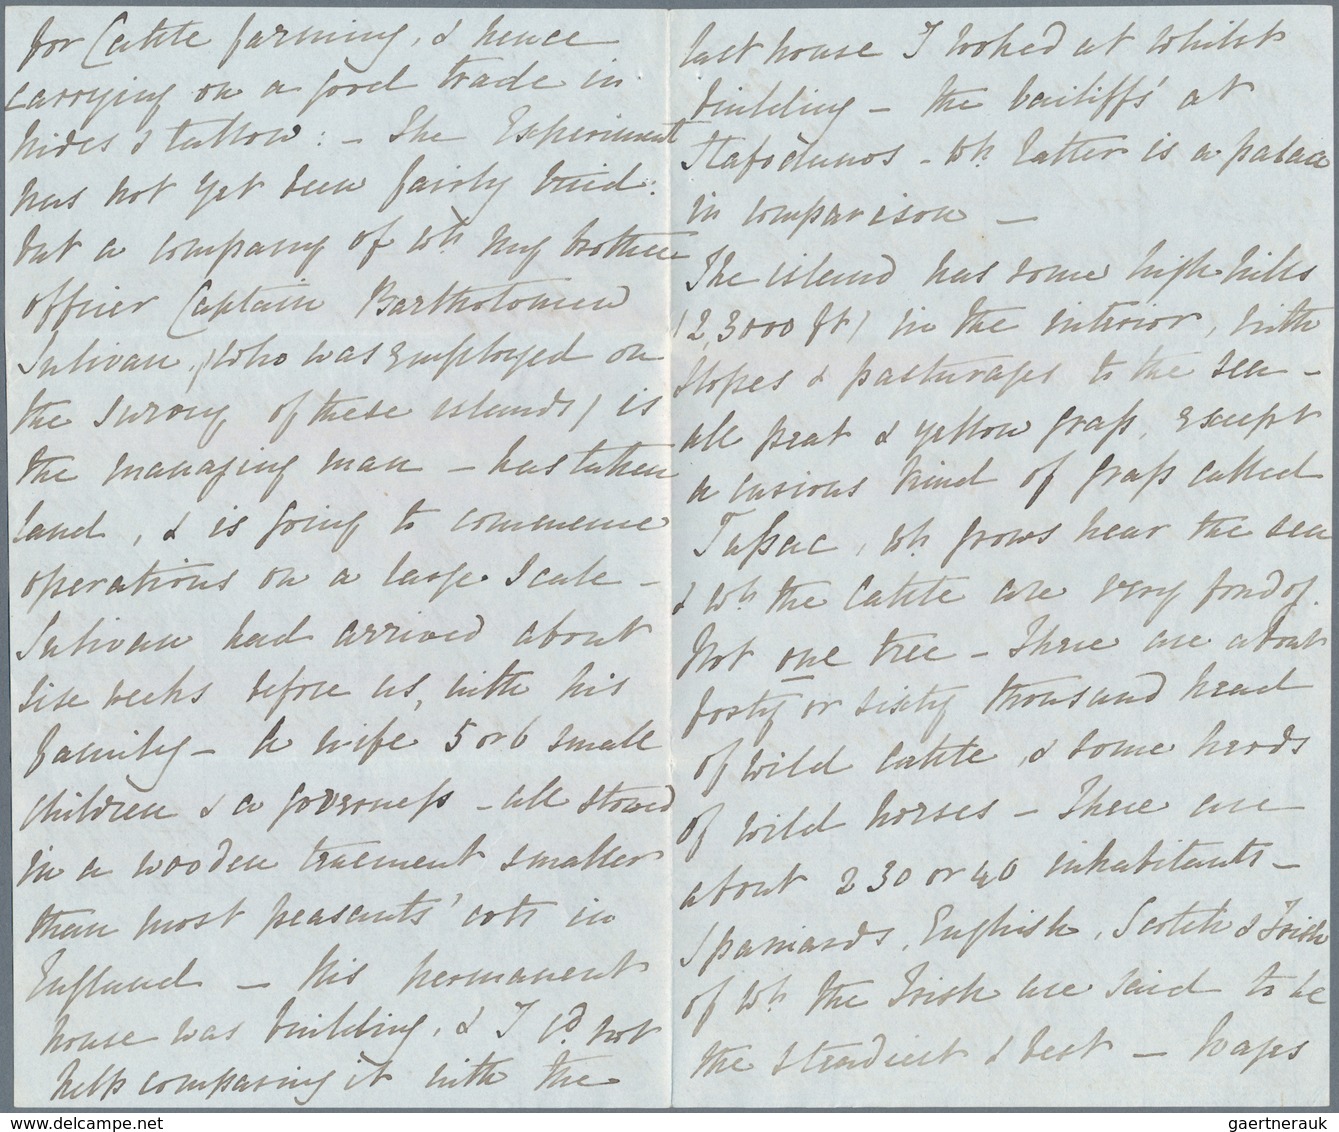 for Cattle farming, & hence
carrying on a good trade in
hides & tallow : – The Experiment
has not yet been fairly tried :
but a company of wh my brother
officer Captain Bartholomew
Sulivan, (who was employed on
the survey of these islands) is
the managing man – has taken
land, & is going to commence
operations on a large scale –
Sulivan had arrived about
six weeks before us, with his
family – A wife 5 or 6 small
children & a governess – all stowed
in a wooden tenement smaller
than most peasants' cots in
England – his permanent
house was building, & I cd not
help comparing it with the
last house I looked at whilst
building – the bailiffs' at
– wh latter is a palace
in comparison –
The island has some high hills
(2,3000 ft) in the interior, with
slopes & pasturages to the sea –
all peat & yellow grass, except
a curious kind of grass called
Tussac, wh grows near the sea
& wh the cattle are very fond of.
Not one tree – There are about
forty or sixty thousand head
of wild cattle, & some herds
of wild horses – There are
about 230 or 40 inhabitants –
Spaniards, English, Scotch & Irish
of wh the Irish are said to be
the steadiest & best – Wages
gaertnerauk
www.delcampe.net